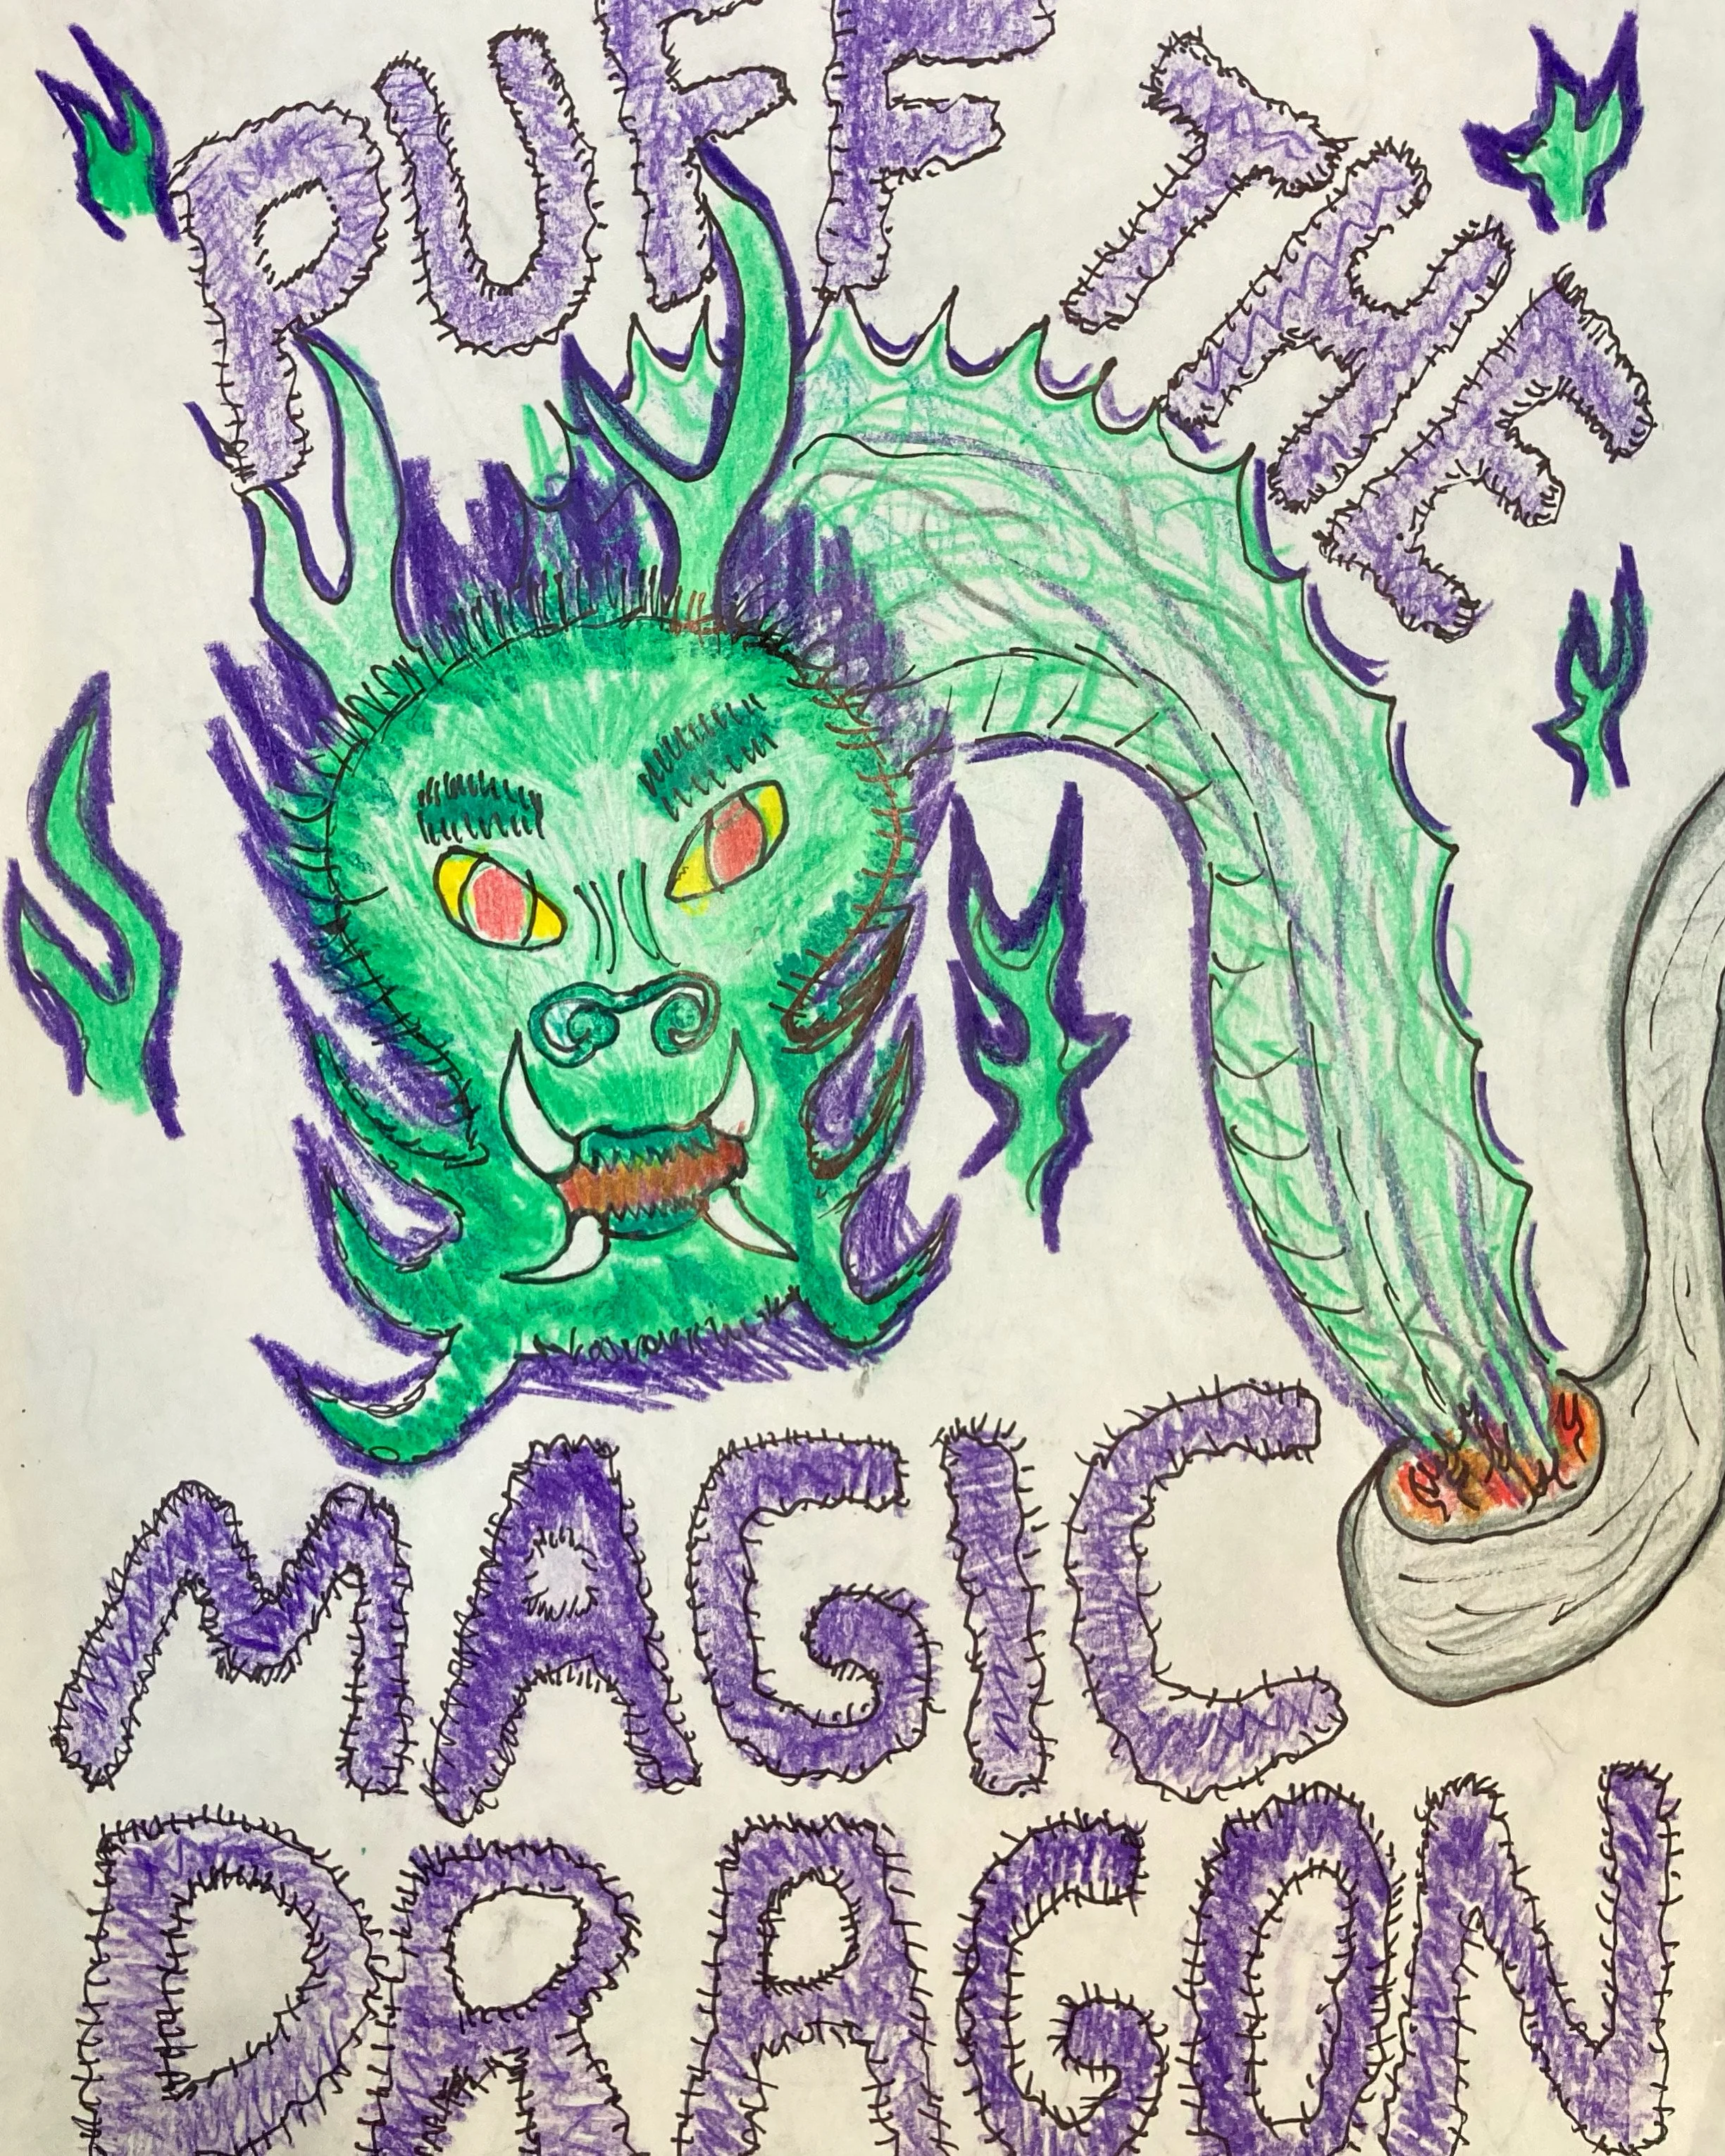 PUFF THE
MAGIC
DRAGON